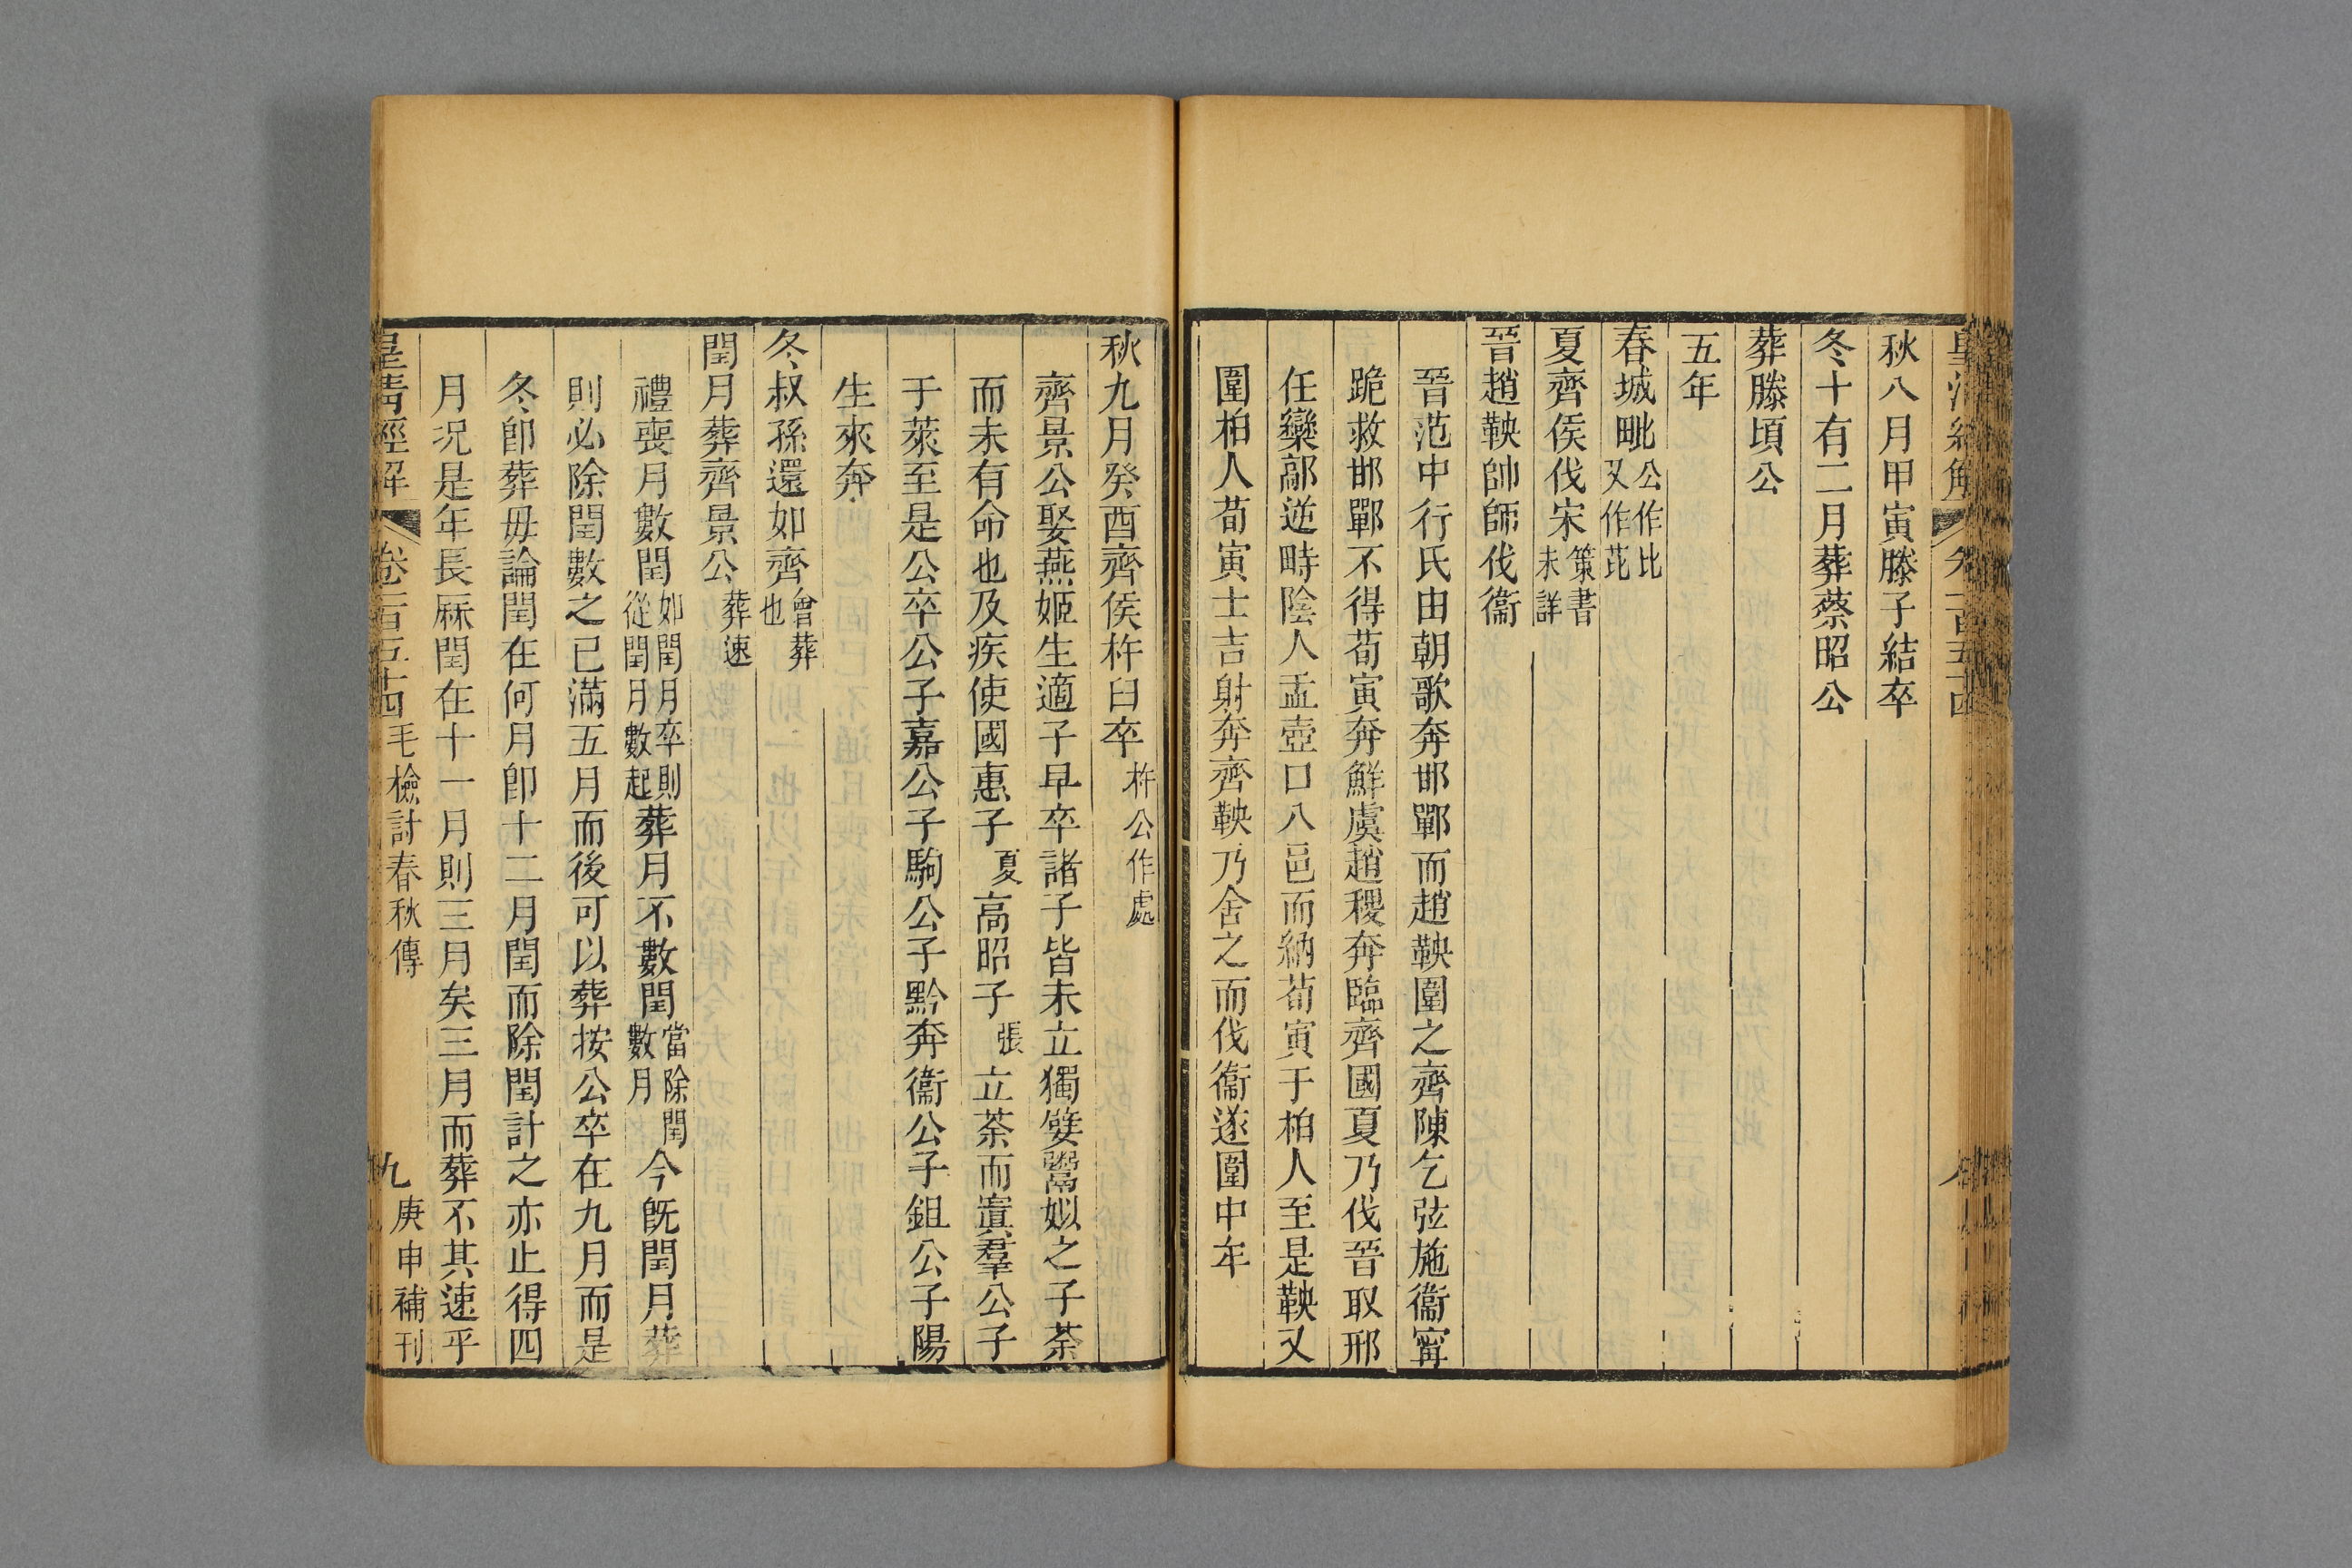 皇清經解 卷一百五十四
秋八月甲寅滕子結卒
冬十有二月葬蔡昭公
葬滕頃公
五年
春城毗公作比又作芘
夏齊侯伐宋策書未詳
晉趙鞅帥師伐衞
晉范中行氏由朝歌奔邯鄲而趙鞅圍之齊陳乞弦施衞甯
跪救邯鄲不得荀寅奔鮮虞趙稷奔臨齊國夏乃伐晉取邢
任欒鄗逆畤陰人盂壺口八邑而納荀寅于柏人至是鞅又
圍柏人荀寅士吉射奔齊鞅乃舍之而伐衞遂圍中牟
秋九月癸酉齊侯杵臼卒杵公作處
齊景公娶燕姬生適子早卒諸子皆未立獨嬖鬻姒之子荼
而未有命也及疾使國惠子夏高昭子張立荼而寘羣公子
于萊至是公卒公子嘉公子駒公子黔奔衞公子鉏公子陽
生來奔
冬叔孫還如齊會葬也
閏月葬齊景公葬速
禮喪月數閏如閏月卒則從閏月數起葬月不數閏當除閏數月今旣閏月葬
則必除閏數之已滿五月而後可以葬按公卒在九月而是
冬卽葬毋論閏在何月卽十二月閏而除閏計之亦止得四
月况是年長厤閏在十一月則三月矣三月而葬不其速乎
皇清經解 卷一百五十四 毛檢討春秋傳 九 庚申補刊